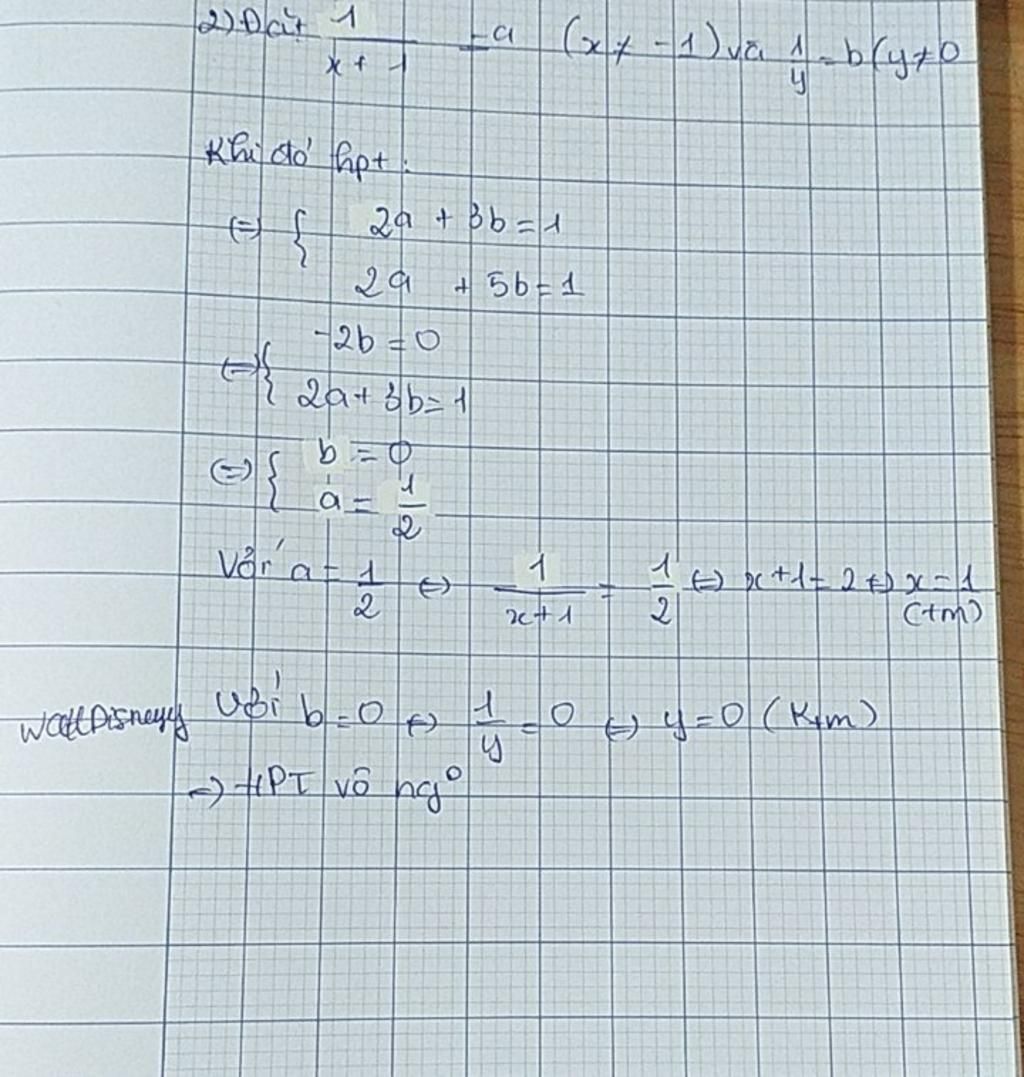 2) Đặt 1/(x + 1) = a (x ≠ -1) và 1/y = b (y ≠ 0
Khi đó hpt:
⇔ { 2a + 3b = 1
2a + 5b = 1
⇔ { -2b = 0
2a + 3b = 1
⇔ { b = 0
a = 1/2
Với a = 1/2 ⇔ 1/(x+1) = 1/2 ⇔ x+1 = 2 ⇔ x = 1
(tm)
WaltDisneyy Với b = 0 ⇔ 1/y = 0 ⇔ y = 0 (Ktm)
⇒ HPT vô ng°